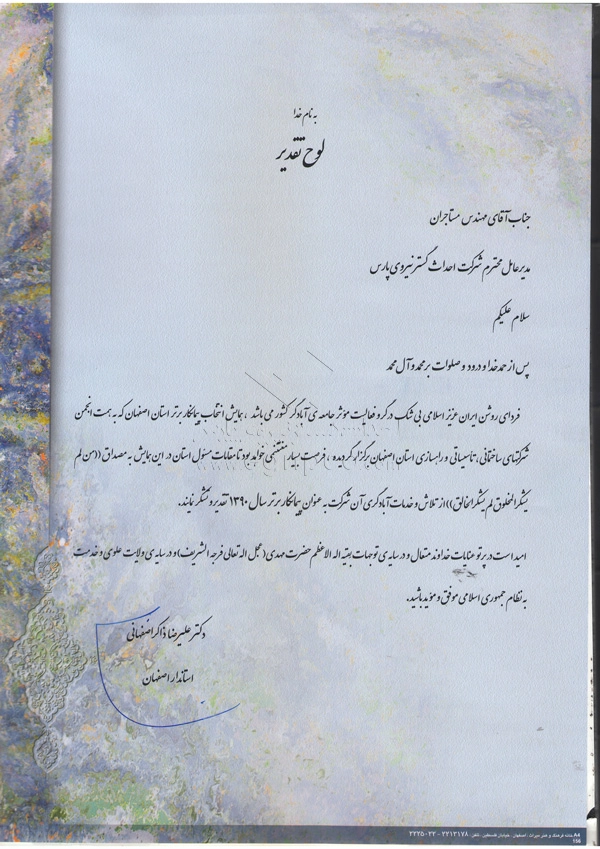 به نام خدا
لوح تقدیر
جناب آقای مهندس مستاجران
مدیرعامل محترم شرکت احداث گستر نیروی پارس
سلام علیکم
پس از حمد خدا و درود و صلوات بر محمد و آل محمد
فردای روشن ایران عزیز اسلامی بی شک در گرو فعالیت مؤثر جامعه ی آبادگر کشور می باشد ، همایش انتخاب پیمانکار برتر استان اصفهان که به همت انجمن
شرکتهای ساختمانی ، تاسیساتی و راهسازی استان اصفهان برگزار گردیده ، فرصت بسیار مغتنمی خواهد بود تا مقامات مسئول استان در این همایش به مصداق ((من لم
یشکر المخلوق لم یشکر الخالق)) از تلاش و خدمات آبادگری آن شرکت به عنوان پیمانکار برتر سال ۱۳۹۰ تقدیر و تشکر نمایند.
امید است در پرتو عنایات خداوند متعال و در سایه ی توجهات بقیته اله الاعظم حضرت مهدی (عجل اله تعالی فرجه الشریف) و در سایه ی ولایت علوی و خدمت
به نظام جمهوری اسلامی موفق و مؤید باشید.
دکتر علیرضا ذاکر اصفهانی
استاندار اصفهان
A4 خانه فرهنگ و هنر میراث : اصفهان، خیابان فلسطین ، تلفن: ۲۲۱۳۱۷۸ - ۲۲۲۵۰۲۲
156